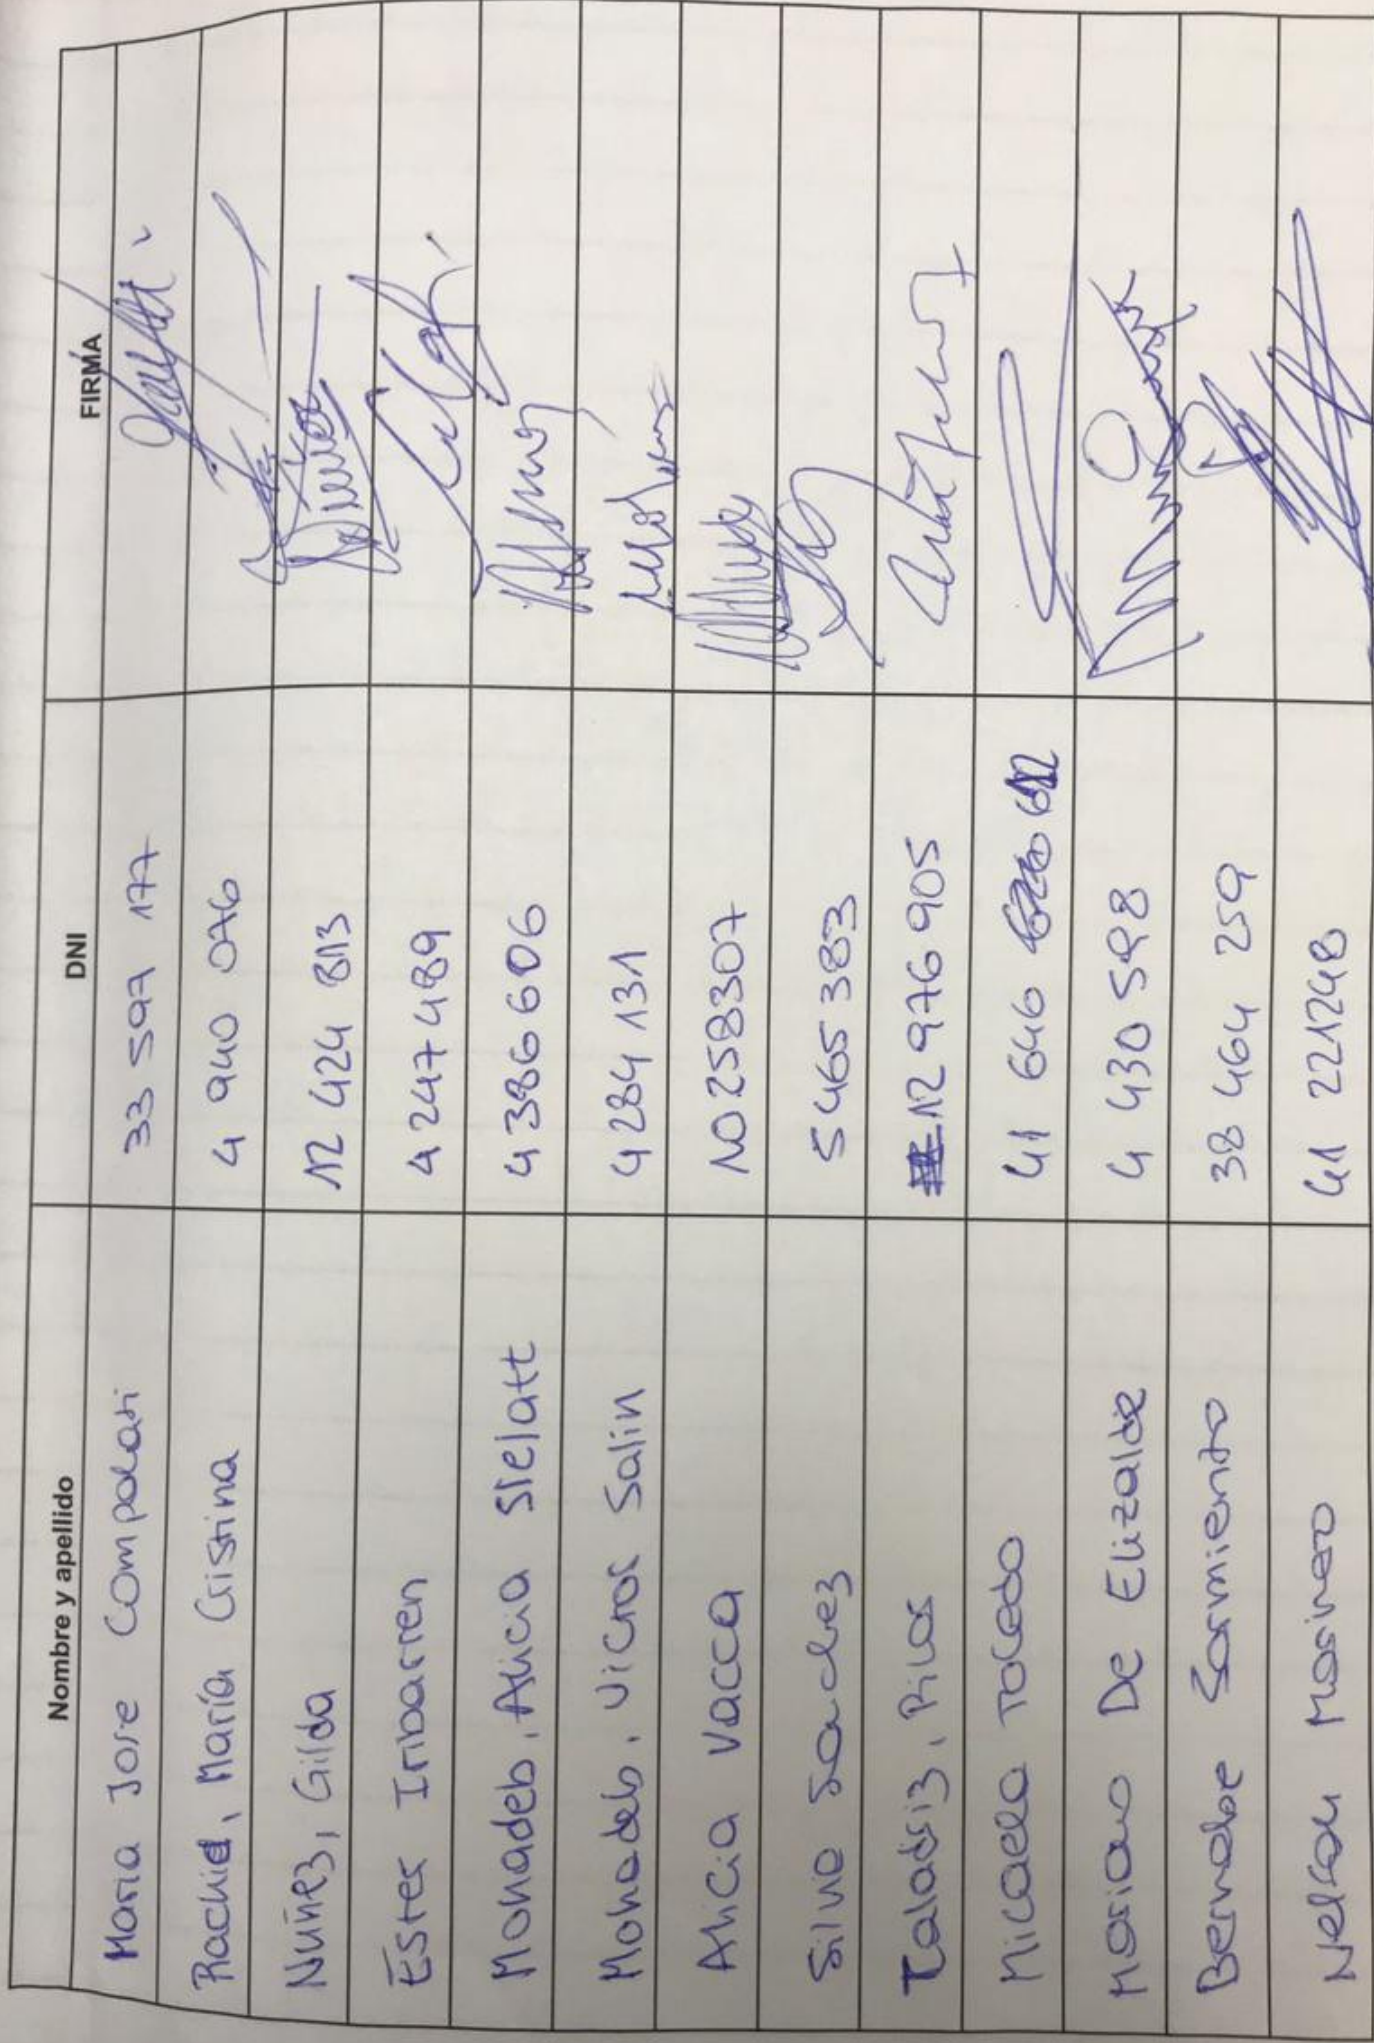 Nombre y apellido DNI FIRMA
Maria Jose Compolati 33 597 177
Rachid, María Cristina 4 940 076
Nuñez, Gilda 12 424 813
Ester Iribarren 4 247 489
Mohadeb, Alicia Slelatt 4 386 606
Mohadeb, Victor Salin 4 284 131
Alicia Vacca 10 258307
Silvia Sanchez 5 465 383
Taladriz, Pilar 12 976 905
Micaela Toledo 41 646 612
Mariano De Elizalde 4 430 598
Bernabe Sarmiento 38 464 259
Nelson Marinero 41 221248